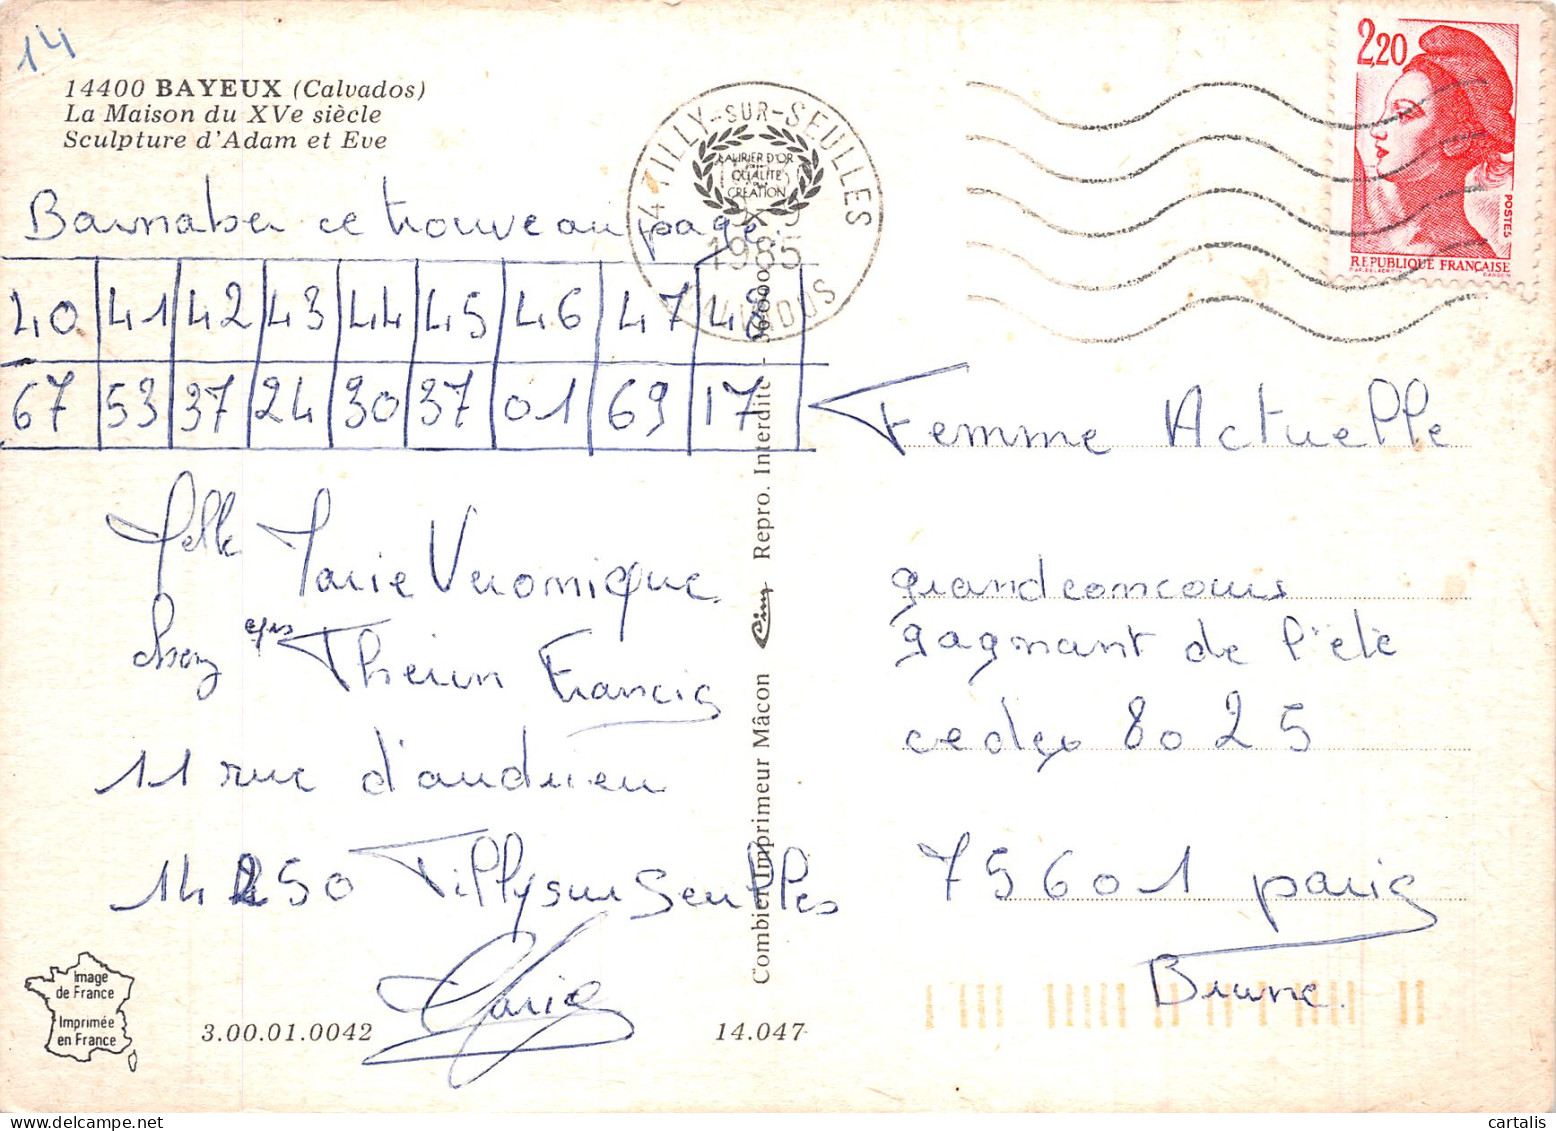 14
14400 BAYEUX (Calvados)
La Maison du XVe siècle
Sculpture d'Adam et Eve
14 TILLY-SUR-SEULLES
LAURIER D'OR
QUALITÉ
CRÉATION
1985
CALVADOS
2,20
POSTES
REPUBLIQUE FRANÇAISE
Barnaber ce trouve au page
40 41 42 43 44 45 46 47 48
67 53 37 24 30 37 01 69 17
Melle Marie Veronique
chez Therun Francis
11 rue d'audrieu
14250 Tilly sur Seulles
Marie
Femme Actuelle
grand concours
gagnant de l'été
cedex 8025
75601 paris
Brune.
Combier Imprimeur Mâcon Cim Repro. Interdite - 36000
Image
de France
Imprimée
en France
3.00.01.0042
14.047
cartalis